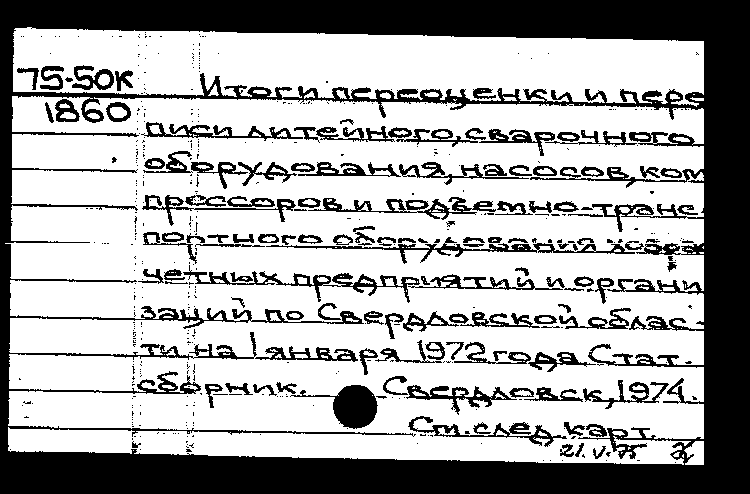 75-50к Итоги переоценки и пере
1860 писи литейного, сварочного
оборудования, насосов, ком
прессоров и подъемно-транс-
портного оборудования хозрас
четных предприятий и органи
заций по Свердловской облас-
ти на 1 января 1972 года. Стат.
сборник. Свердловск, 1974.
См. след. карт.
21.V.75